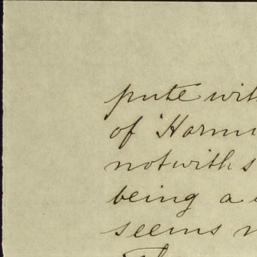 pute wit
of "Harm
notwiths
being a
seems